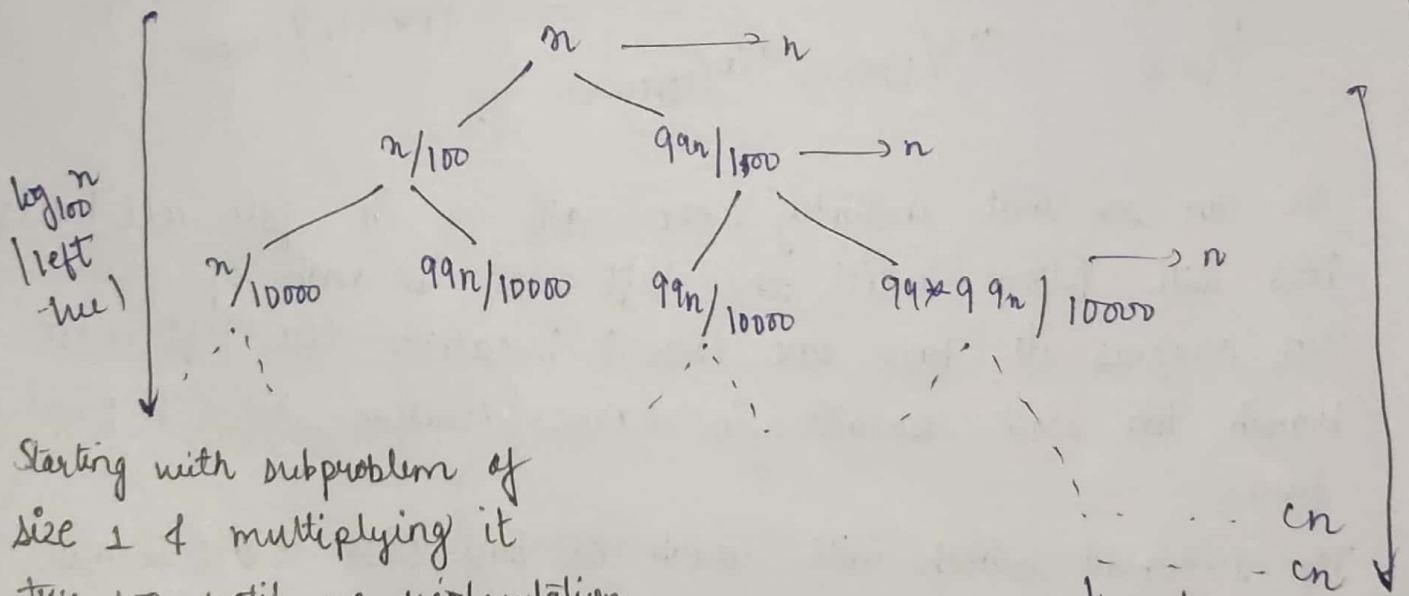 n → n
n/100 99n/100 → n
log₁₀₀n
(left
tree)
n/10000 99n/10000 99n/10000 99*99n/10000 → n
Starting with subproblem of
size 1 & multiplying it
cn
cn
until